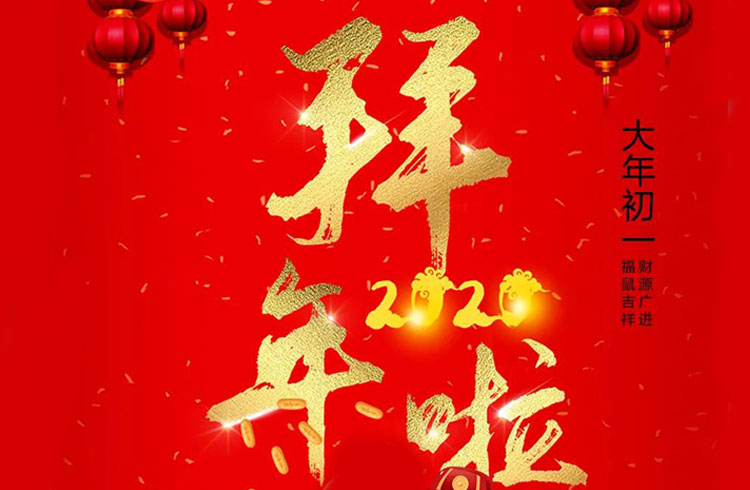 拜
年啦
2020
大年初一
财源广进
福鼠吉祥